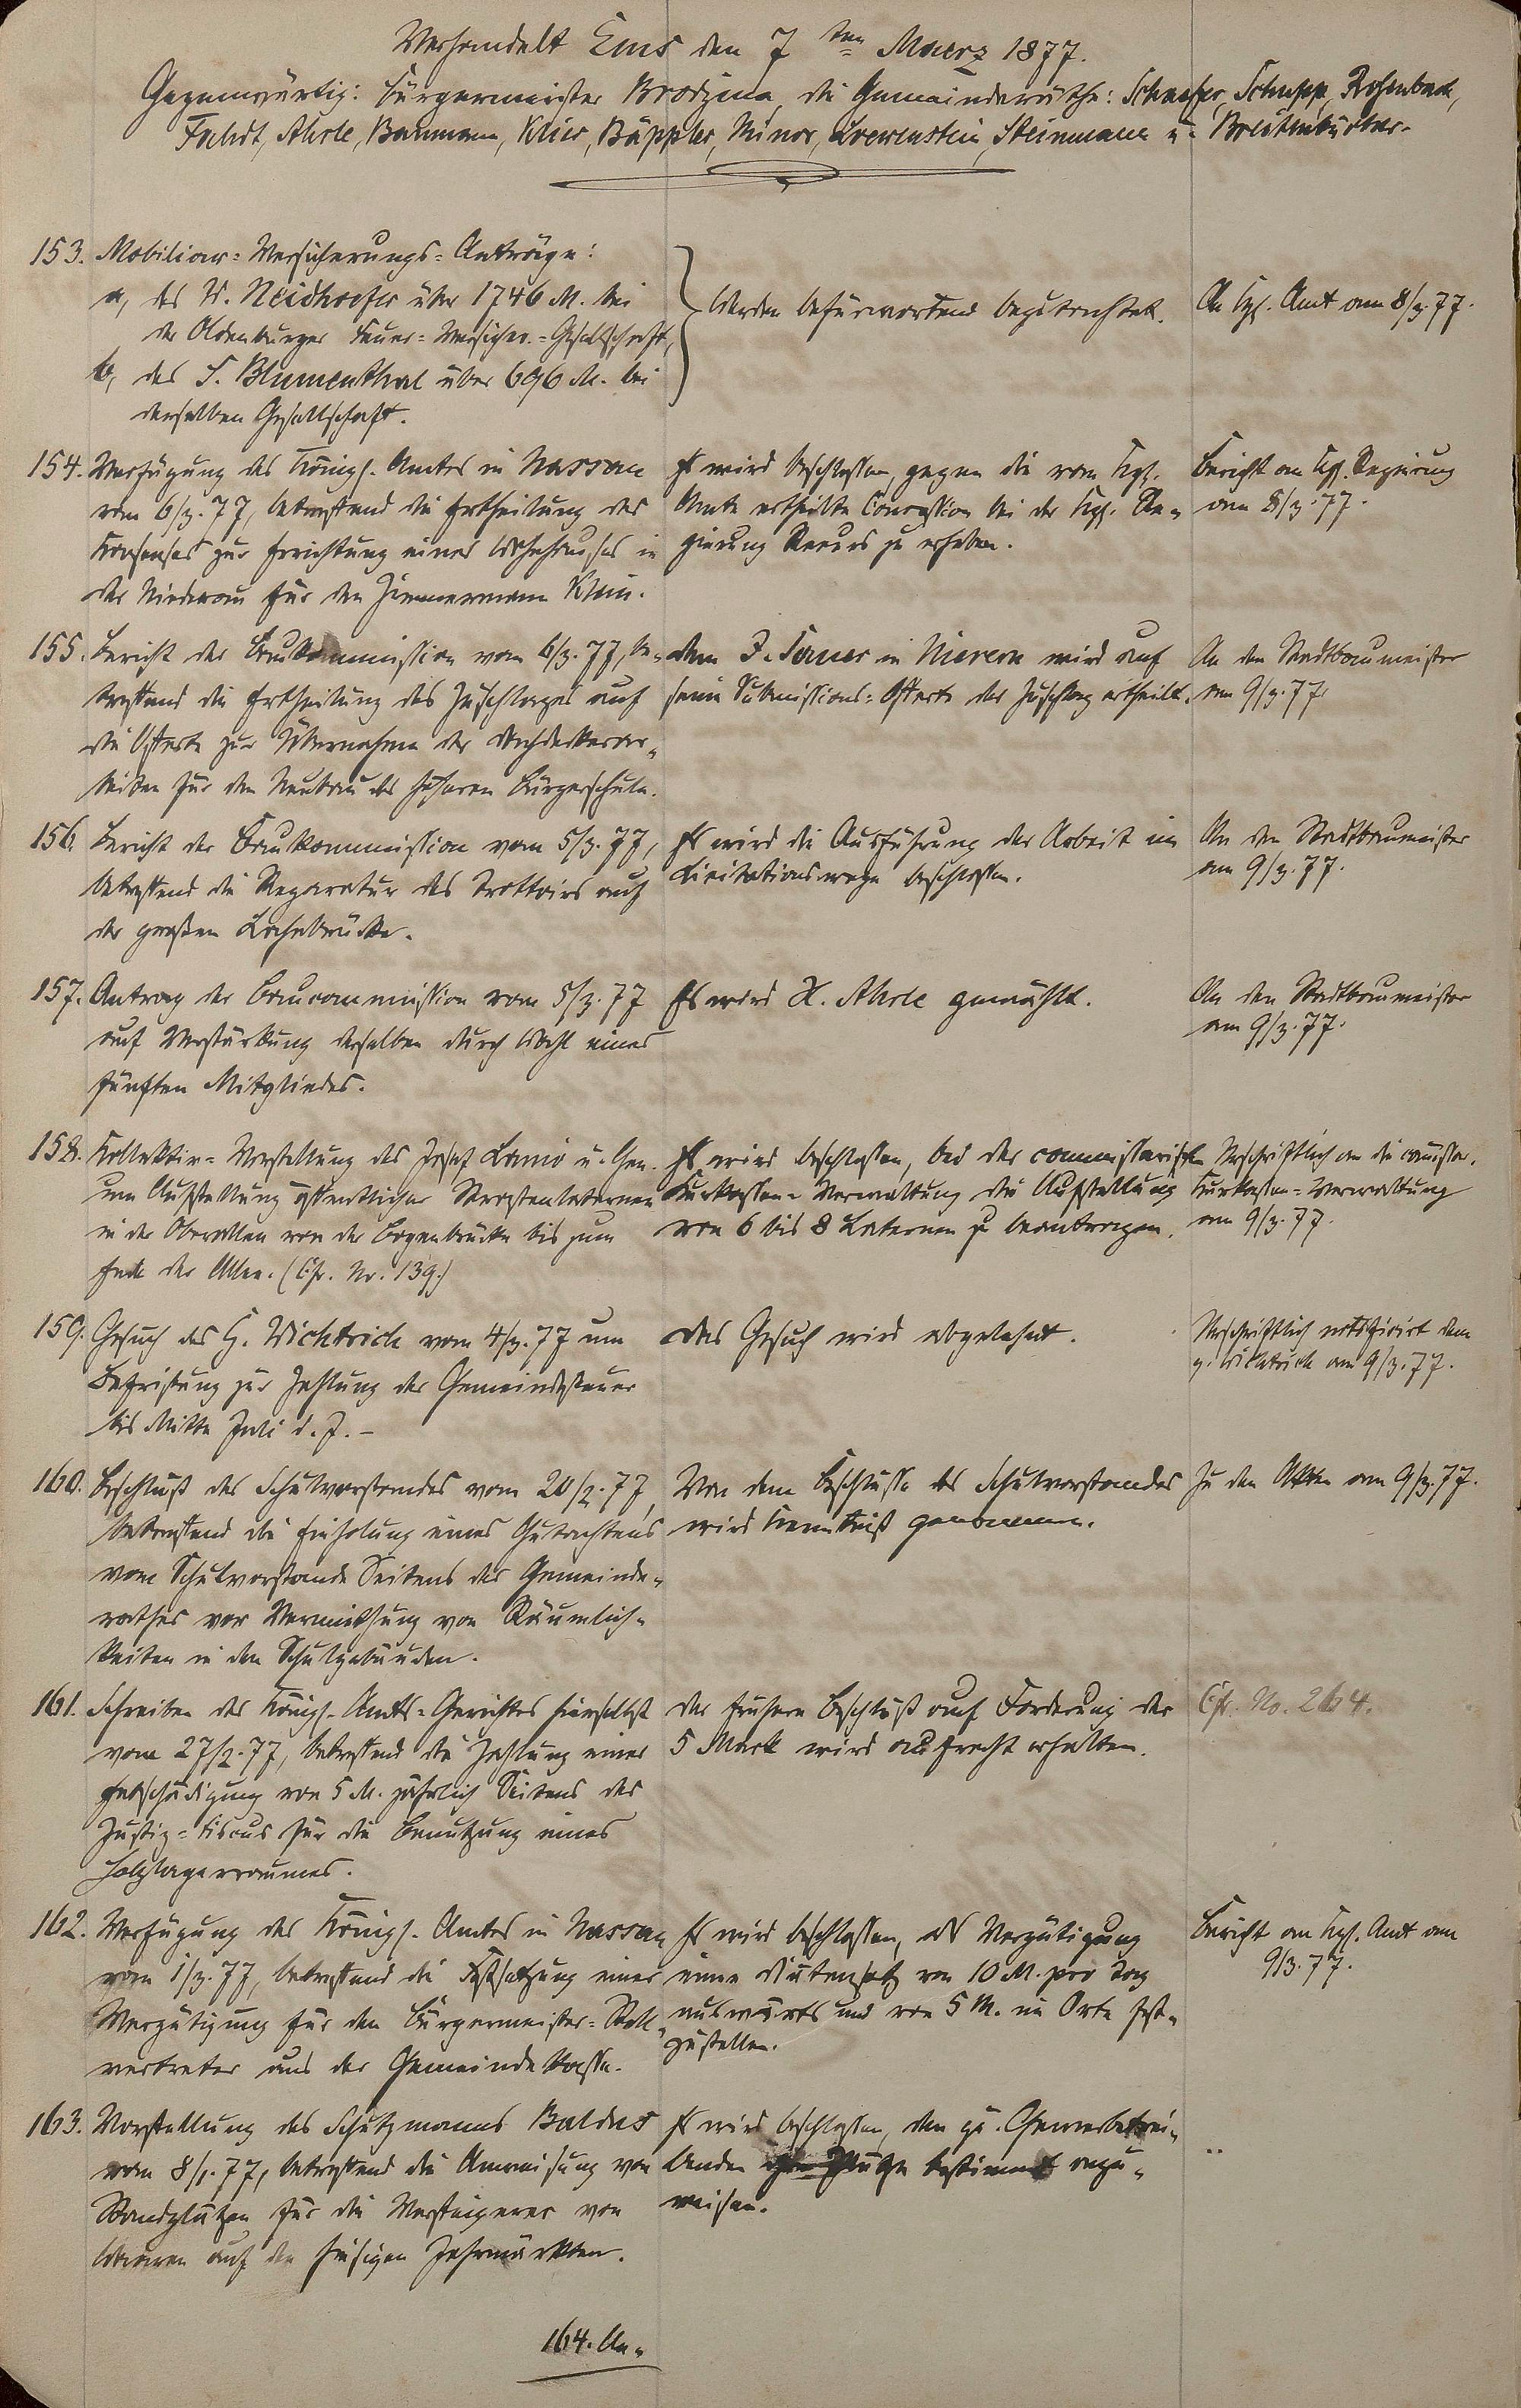 Verhandelt Ems den 7ten Maerz 1877.
Gegenwärtig: Bürgermeister Brodzina, die Gemeinderäthe: Schaefer, Schupp, Rosenbach,
Fahdt, Ahrle, Baumann, Klier, Bäppler, Minor, Loewenstein, Steinmann u. Breitenbücher.
153. Mobiliar=Versicherungs=Anträge:
a, des W. Neidhoefer über 1746 M. bei
der Oldenburger Feuer=Versicher.=Gesellschaft,
b, des S. Blumenthal über 696 M. bei
derselben Gesellschaft.
Werden befürwortend begutachtet.
An Kgl. Amt am 8/3.77.
154. Verfügung des Königl. Amtes in Nassau
vom 6/3.77, betreffend die Ertheilung des
Konsenses zur Errichtung eines Wohnhauses in
der Niederau für den Zimmermann Klein.
Es wird beschlossen, gegen die vom Kgl.
Amte ertheilte Concession bei der Kgl. Re=
gierung Recurs zu erheben.
Bericht an Kgl. Regierung
am 8/3.77.
155. Bericht der Baukommission vom 6/3.77, be=
treffend die Ertheilung des Zuschlages auf
die Offerte zur Übernahme der Dachdeckerar=
beiten für den Neubau der höheren Bürgerschule.
Dem J. Sauer in Nievern wird auf
seine Submissions=Offerte der Zuschlag ertheilt.
An den Stadtbaumeister
am 9/3.77.
156. Bericht der Baukommission vom 5/3.77,
betreffend die Reparatur des Trottoirs auf
der großen Lahnbrücke.
Es wird die Ausführung der Arbeit im
Licitationswege beschlossen.
An den Stadtbaumeister
am 9/3.77.
157. Antrag der Baucommission vom 5/3.77
auf Verstärkung derselben durch Wahl eines
fünften Mitgliedes.
Es wird H. Ahrle gewählt.
An den Stadtbaumeister
am 9/3.77.
158. Kollektiv=Vorstellung des Josef Lamio u. Gen.
um Aufstellung öffentlicher Straßenlaternen
in der Oberallee von der Bogenbrücke bis zum
Ende der Allee. (Cfr. No. 139.)
Es wird beschlossen, bei der commissarischen
Kurkassen=Verwaltung die Aufstellung
von 6 bis 8 Laternen zu beantragen.
Urschriftlich an die commissar.
Kurkassen=Verwaltung
am 9/3.77.
159. Gesuch des G. Wichtrich vom 4/3.77 um
Befristung zur Zahlung der Gemeindesteuer
bis Mitte Juli d. J. –
Das Gesuch wird abgelehnt.
Urschriftlich notifizirt dem
g. Wichtrich am 9/3.77.
160. Beschluß des Schulvorstandes vom 20/2.77,
betreffend die Einholung eines Gutachtens
vom Schulvorstande Seitens des Gemeinde=
rathes vor Vermiethung von Räumlich=
keiten in den Schulgebäuden.
Von dem Beschlusse des Schulvorstandes
wird Kenntniß genommen.
Zu den Akten am 9/3.77.
161. Schreiben des Königl. Amts=Gerichtes hierselbst
vom 27/2.77, betreffend die Zahlung einer
Entschädigung von 5 M. jährlich Seitens des
Justiz=Fiscus für die Benutzung eines
Holzlagerraumes.
Der frühere Beschluß auf Forderung der
5 Mark wird aufrecht erhalten.
Cfr. No. 264.
162. Verfügung des Königl. Amtes in Nassau
vom 1/3.77, betreffend die Festsetzung einer
Vergütigung für den Bürgermeister=Stell=
vertreter aus der Gemeindekasse.
Es wird beschlossen, als Vergütigung
einen Diätensatz von 10 M. pro Tag
auswärts und von 5 M. im Orte fest=
zustellen.
Bericht an Kgl. Amt am
9/3.77.
163. Vorstellung des Schutzmanns Baldus
vom 8/1.77, betreffend die Anweisung von
Standplätzen für die Versteigerer von
Waaren auf den hiesigen Jahrmärkten.
Es wird beschlossen, den qu. Gewerbetrei=
benden Plätze bestimmt anzu=
weisen.
..
164. An=